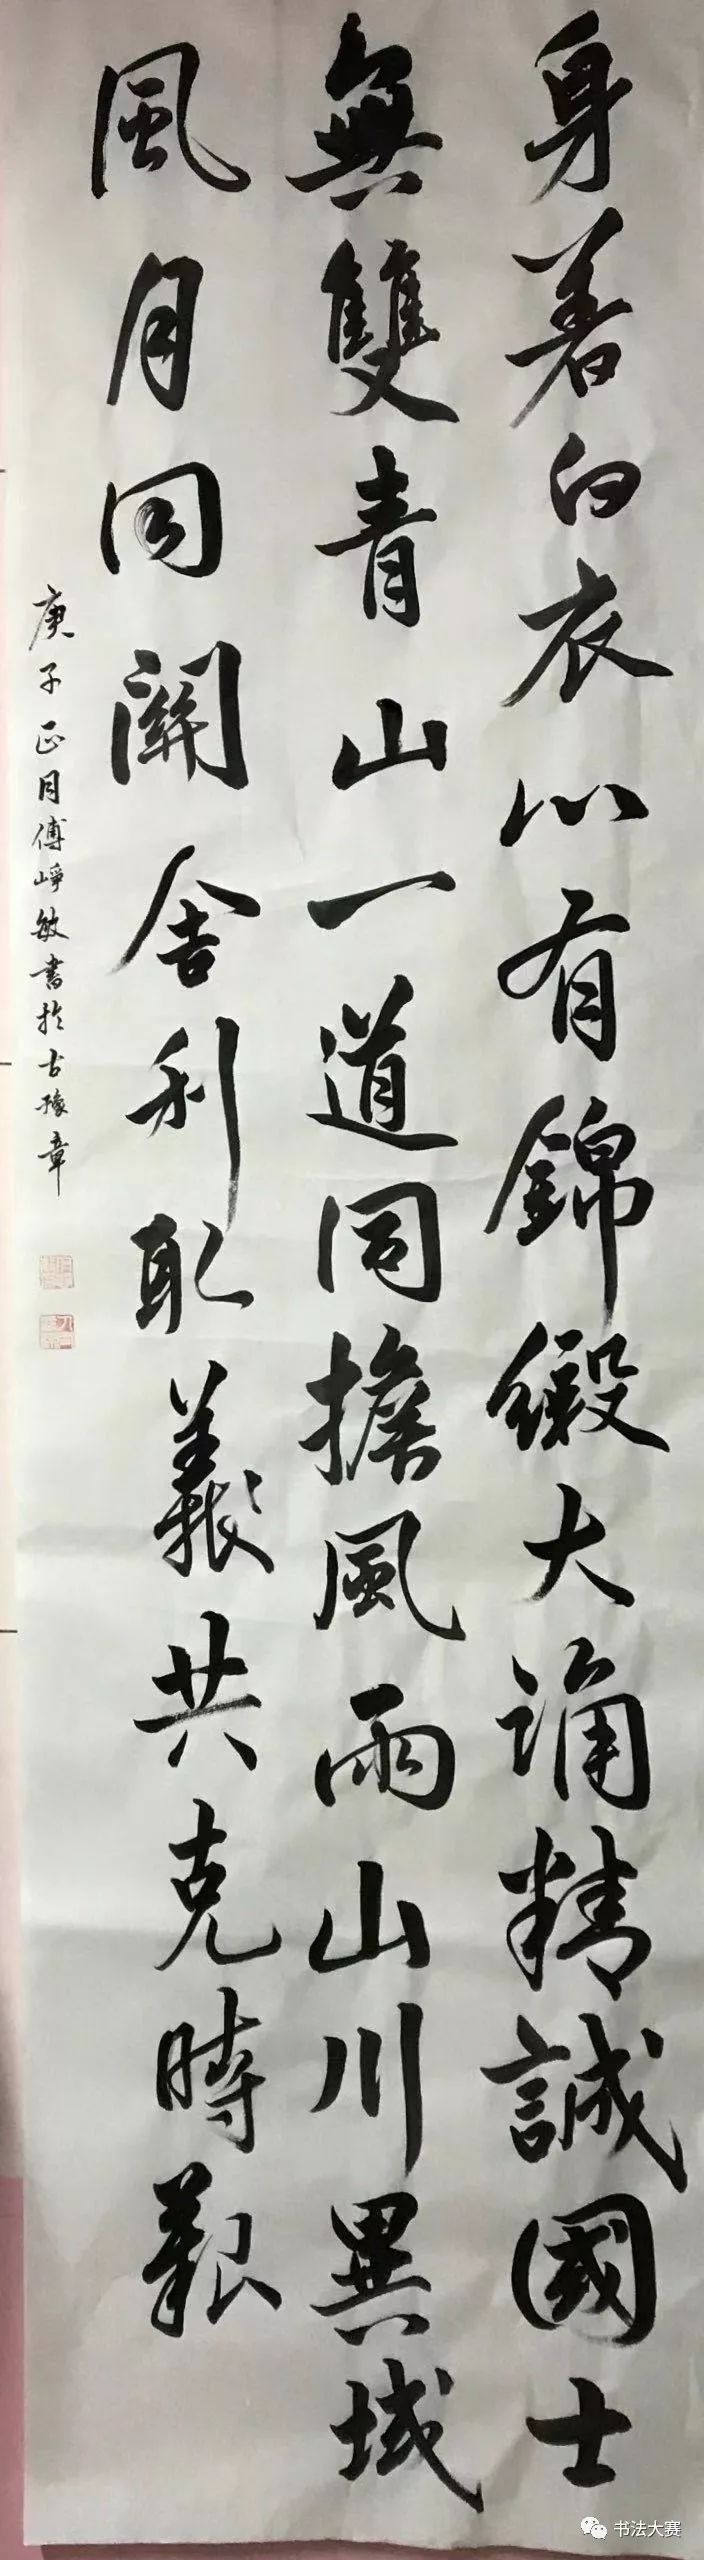 身著白衣心有錦緞大誦精誠國士
無雙青山一道同擔風雨山川異域
風月同關舍利取義共克時艱
庚子正月傅崢敏書於古豫章
书法大赛